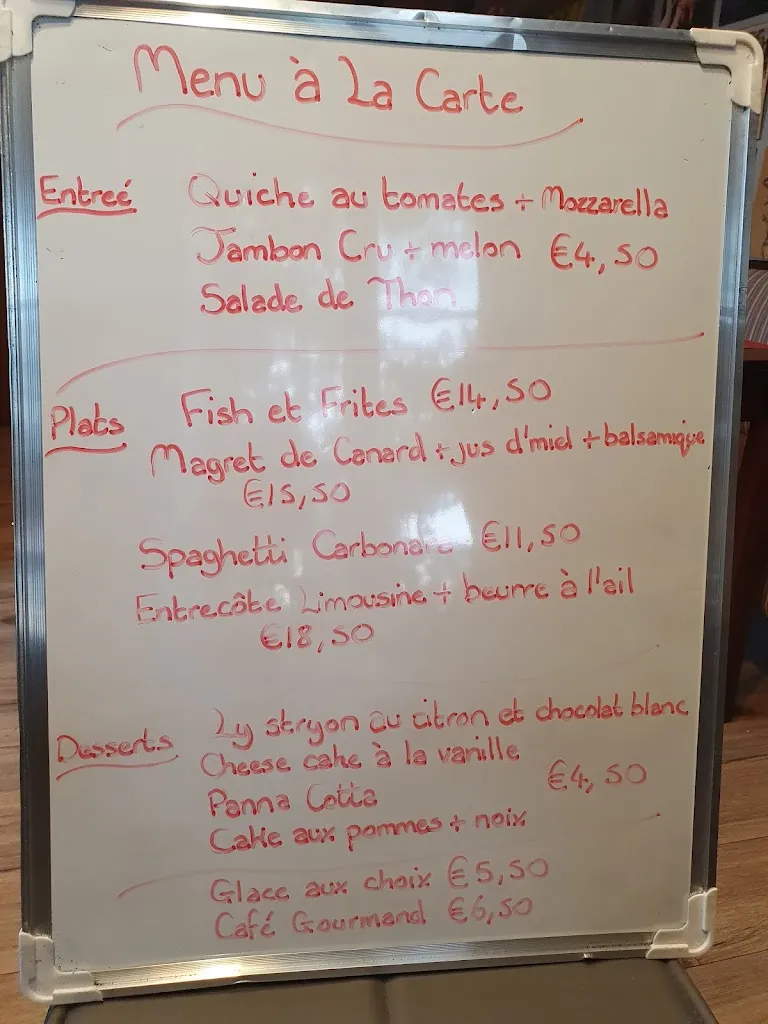 Menu à La Carte
Entreé Quiche au tomates + Mozzarella
Jambon Cru + melon €4,50
Salade de Thon
Plats Fish et Frites €14,50
Magret de Canard + jus d'miel + balsamique
€15,50
Spaghetti Carbonara €11,50
Entrecôte Limousine + beurre à l'ail
€18,50
Desserts Ly stryon au citron et chocolat blanc
Cheese cake à la vanille
€4,50
Panna Cotta
Cake aux pommes + noix
Glace aux choix €5,50
Café Gourmand €6,50